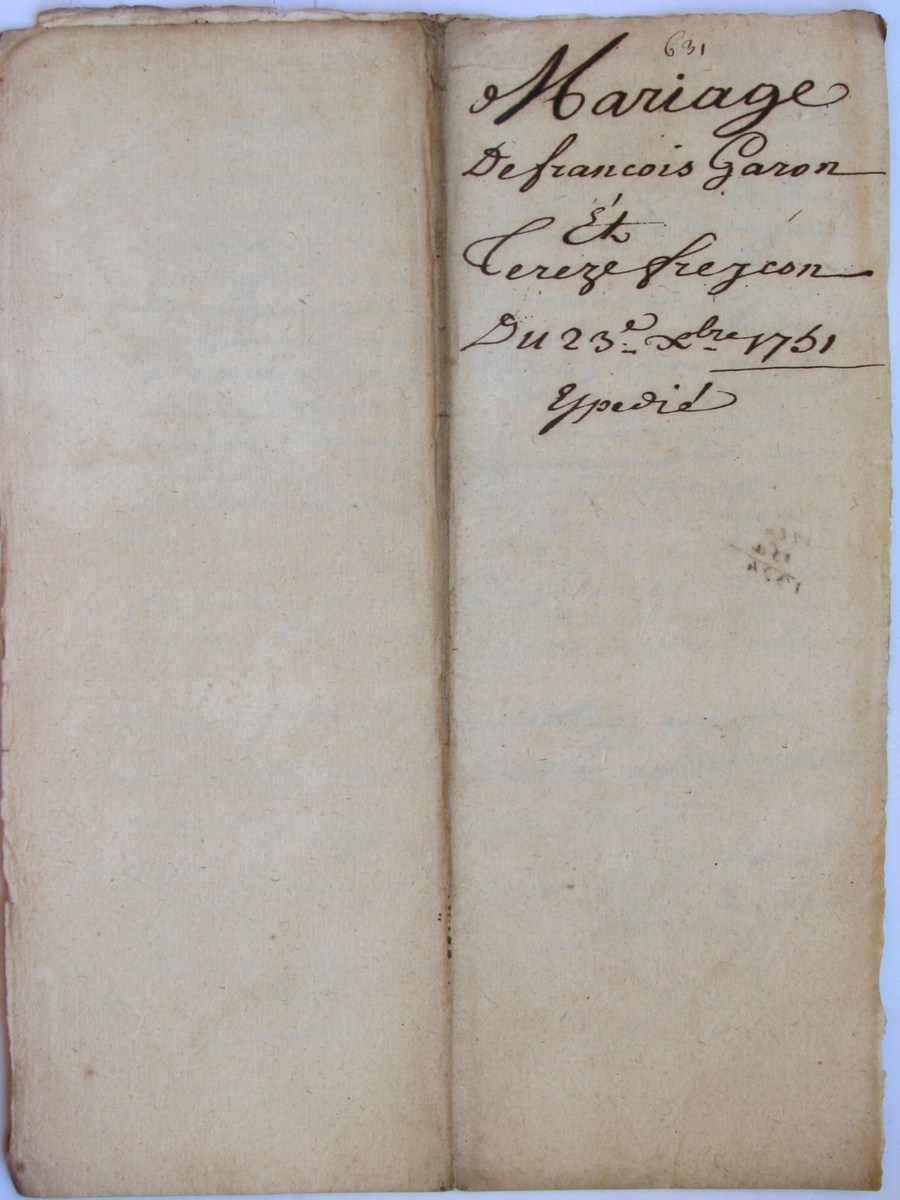 631
Mariage
De francois Garon
Et
Tereze freycon
Du 23e xbre 1751
Expedié